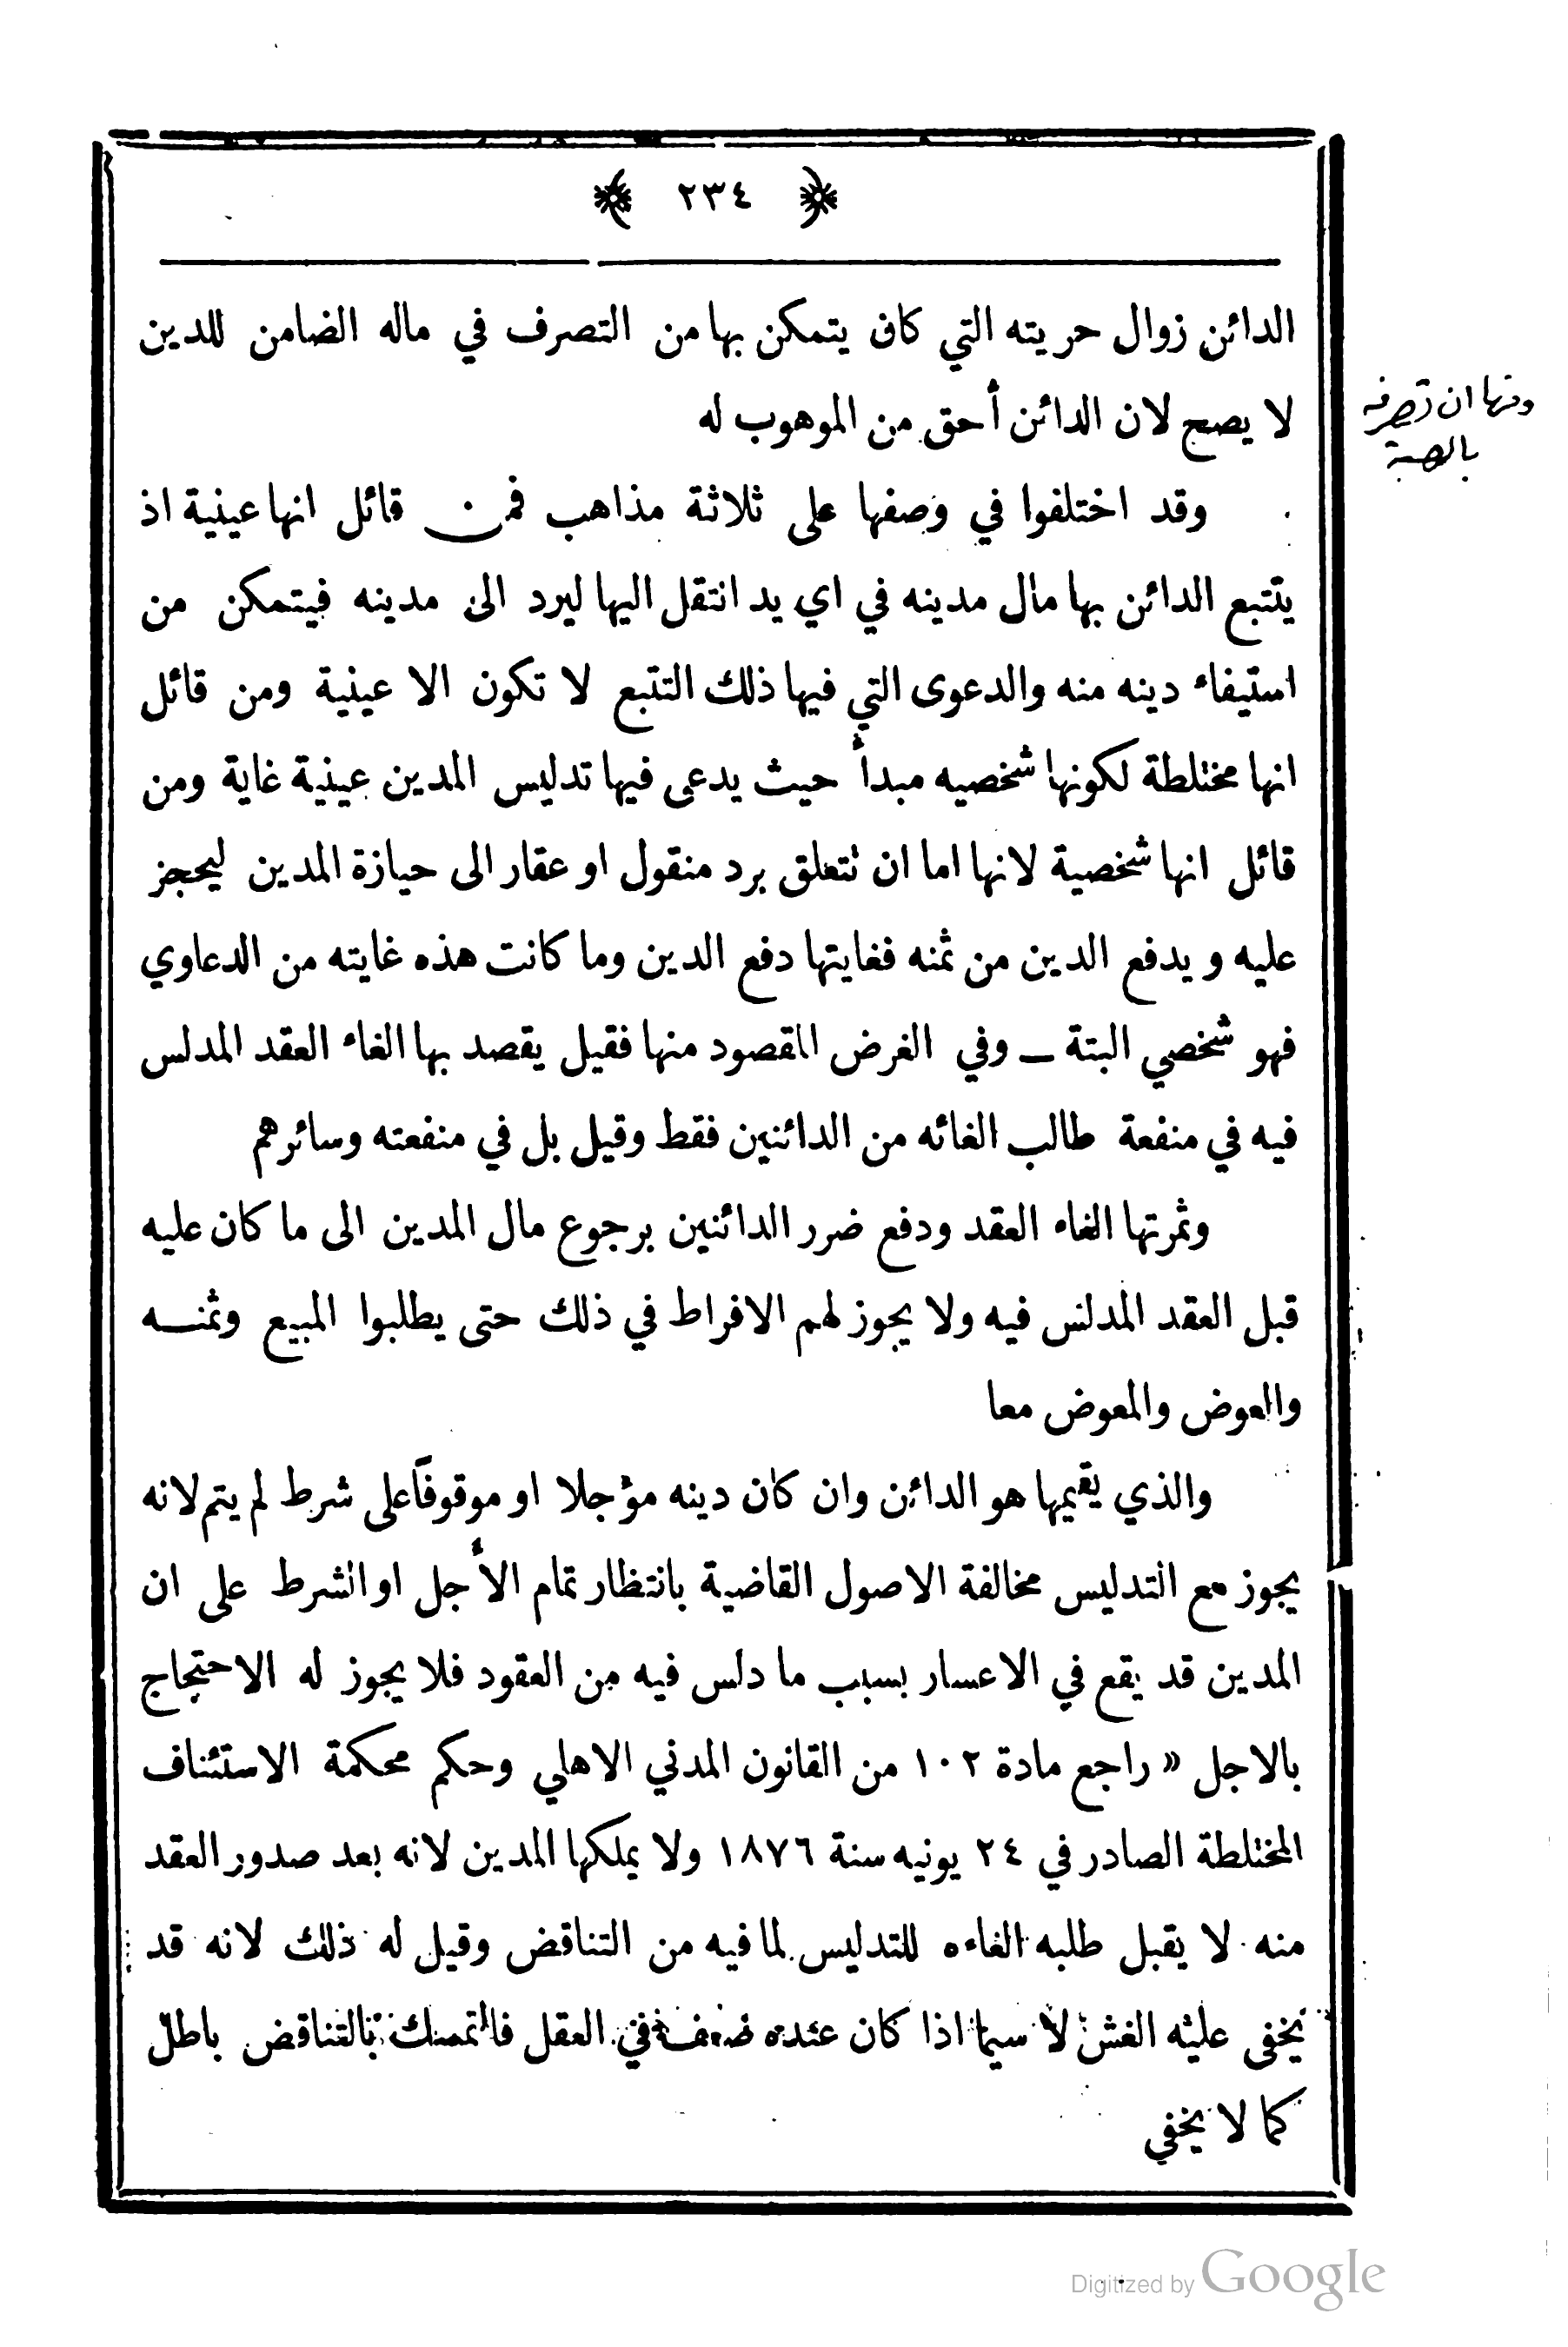 ﴿ ٢٣٤ ﴾
الدائن زوال حريته التي كان يتمكن بها من التصرف في ماله الضامن للدين
لا يصح لان الدائن أحق من الموهوب له
ومنها ان تصرفه
بالهبة
وقد اختلفوا في وصفها على ثلاثة مذاهب فمن قائل انها عينية اذ
يتتبع الدائن بها مال مدينه في اي يد انتقل اليها ليرد الى مدينه فيتمكن من
استيفاء دينه منه والدعوى التي فيها ذلك التتبع لا تكون الا عينية ومن قائل
انها مختلطة لكونها شخصيه مبدأ حيث يدعى فيها تدليس المدين عينية غاية ومن
قائل انها شخصية لانها اما ان نتعلق برد منقول او عقار الى حيازة المدين ليحجز
عليه ويدفع الدين من ثمنه فغايتها دفع الدين وما كانت هذه غايته من الدعاوي
فهو شخصي البتة — وفي الغرض المقصود منها فقيل يقصد بها الغاء العقد المدلس
فيه في منفعة طالب الغائه من الدائنين فقط وقيل بل في منفعته وسائرهم
وثمرتها الغاء العقد ودفع ضرر الدائنين برجوع مال المدين الى ما كان عليه
قبل العقد المدلس فيه ولا يجوز لهم الافراط في ذلك حتى يطلبوا المبيع وثمنه
والعوض والمعوض معا
والذي يقيمها هو الدائن وان كان دينه مؤجلا او موقوفاً على شرط لم يتم لانه
يجوز مع التدليس مخالفة الاصول القاضية بانتظار تمام الأجل او الشرط على ان
المدين قد يقع في الاعسار بسبب ما دلس فيه من العقود فلا يجوز له الاحتجاج
بالاجل « راجع مادة ١٠٢ من القانون المدني الاهلي وحكم محكمة الاستئناف
المختلطة الصادر في ٢٤ يونيه سنة ١٨٧٦ ولا يملكها المدين لانه بعد صدور العقد
منه لا يقبل طلبه الغاءه للتدليس لما فيه من التناقض وقيل له ذلك لانه قد
يخفى عليه الغش لا سيما اذا كان عنده ضعف في العقل فالتمسك بالتناقض باطل
كما لا يخفى
Digitized by Google